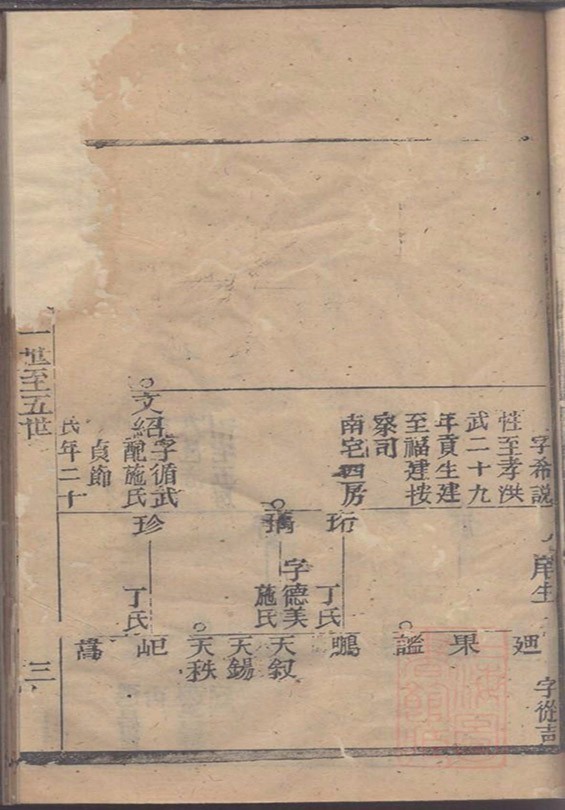 字希說
性至孝洪
武二十九
年貢生建
至福建按
察司
南宅四房
文紹
字循武
配施氏
貞節
氏年二十
庠生
字從吉
珩
丁氏
瑀
字德美
施氏
珍
丁氏
廻
果
謐
鵬
天叙
天錫
天秩
屺
嵩
一世至五世
三